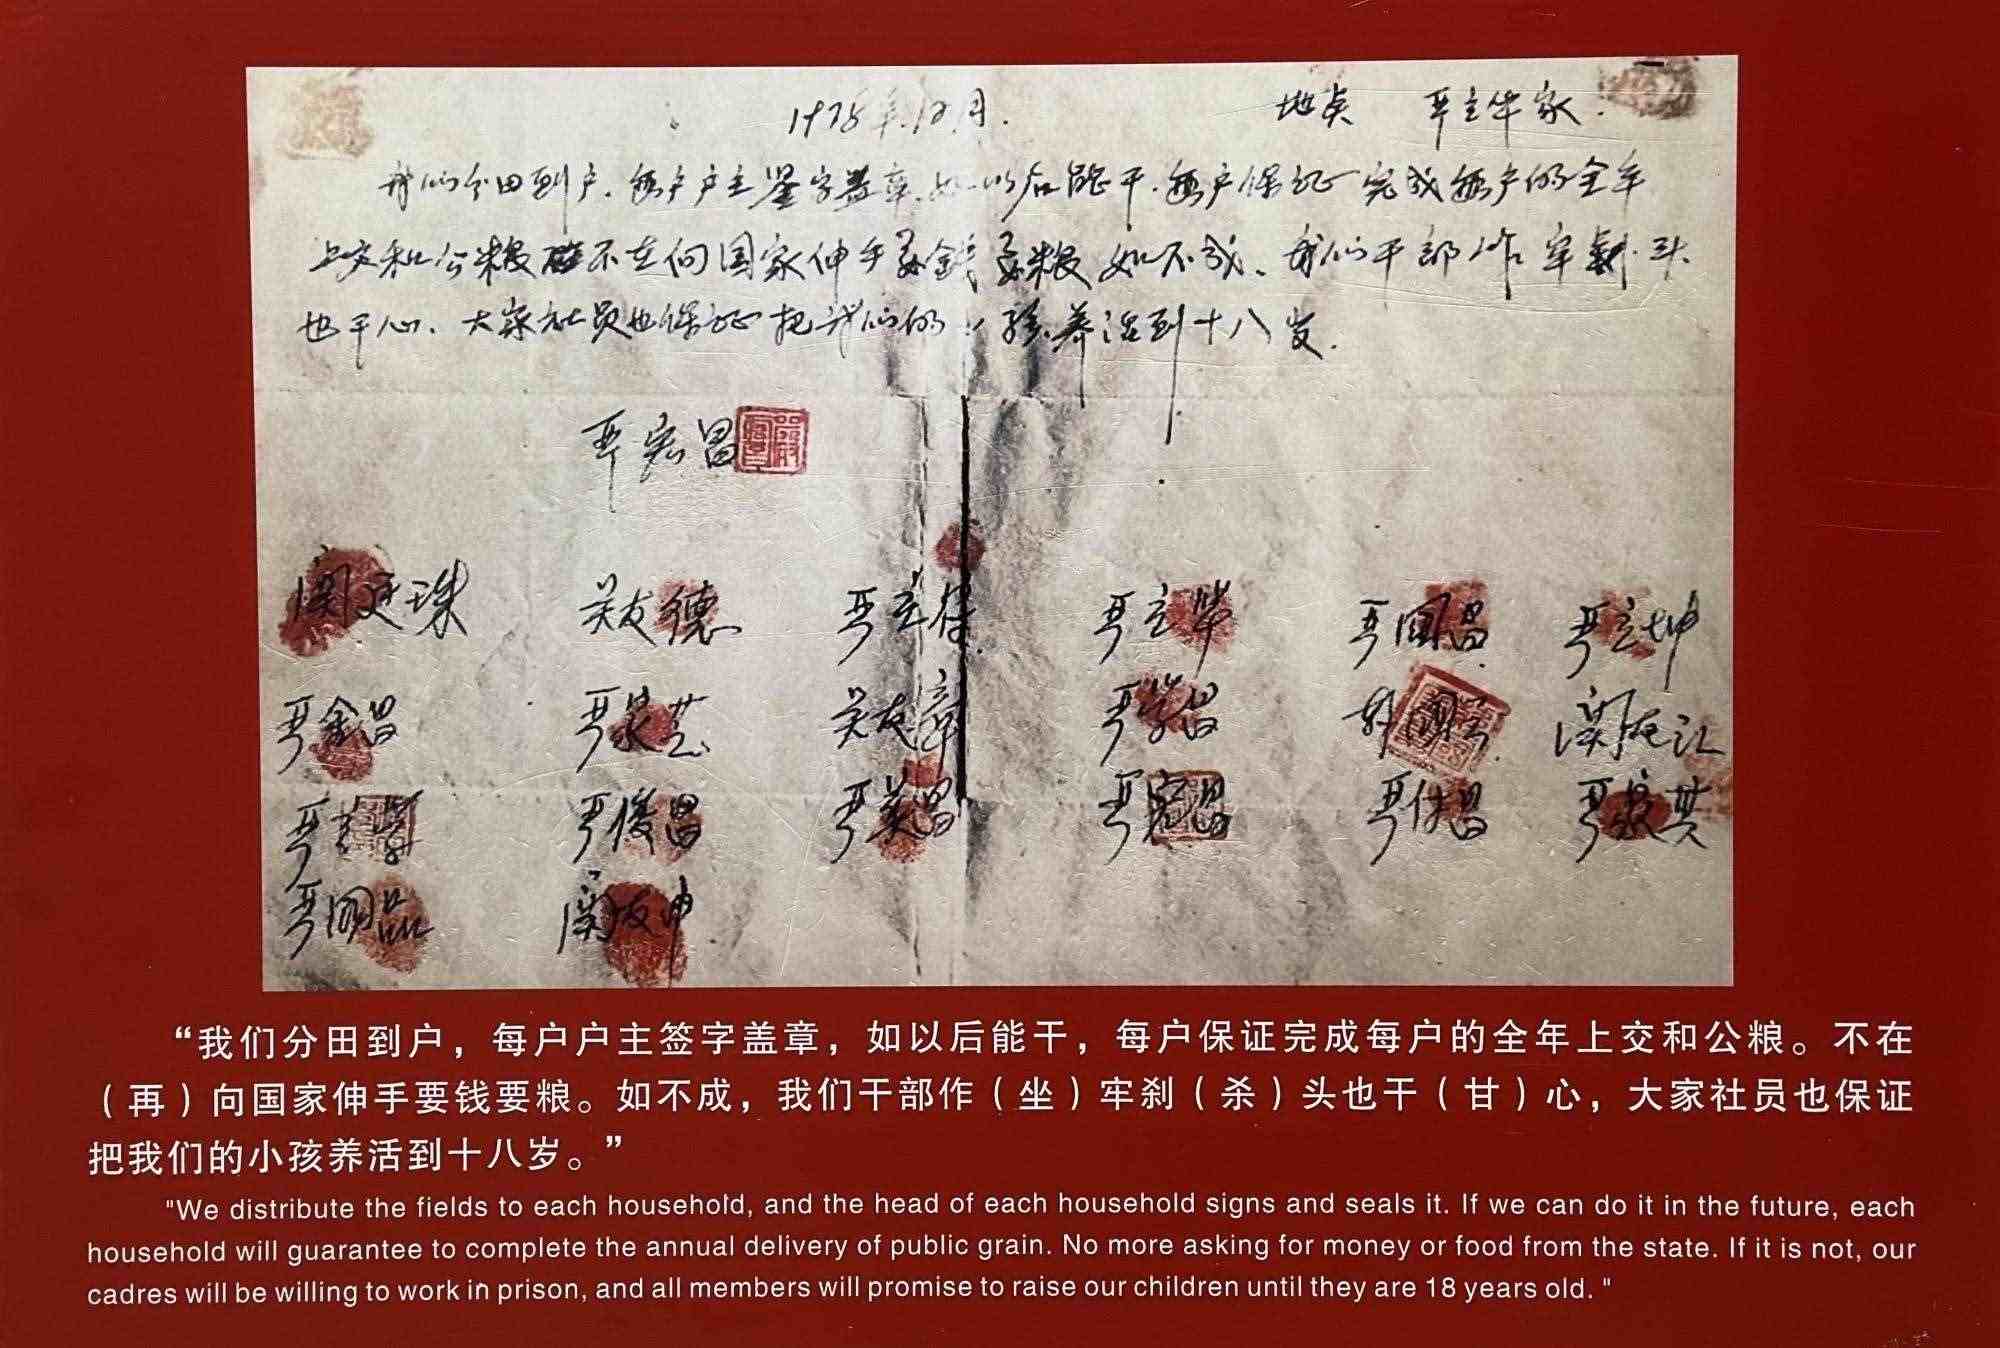 1978年12月. 地点 严立华家.
我们分田到户.每户户主鉴字盖章.如以后能干.每户保证完成每户的全年
上交和公粮 不在向国家伸手要钱要粮如不成、我们干部作牢刹头
也干心、大家社员也保证把我们的小孩养活到十八岁.
严宏昌
关廷珠 关友德 严立符 严立华 严国昌 严立坤
严金昌 严家芝 关友章 严学昌 韩国云 关友江
严立学 严俊昌 严美昌 严宏昌 严付昌 严家其
严国品 关友申
“我们分田到户，每户户主签字盖章，如以后能干，每户保证完成每户的全年上交和公粮。不在
（再）向国家伸手要钱要粮。如不成，我们干部作（坐）牢刹（杀）头也干（甘）心，大家社员也保证
把我们的小孩养活到十八岁。”
"We distribute the fields to each household, and the head of each household signs and seals it. If we can do it in the future, each
household will guarantee to complete the annual delivery of public grain. No more asking for money or food from the state. If it is not, our
cadres will be willing to work in prison, and all members will promise to raise our children until they are 18 years old. "